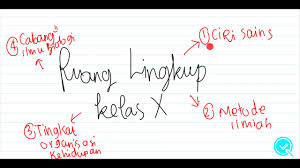 Ruang Lingkup
kelas X
① Ciri sains
② Metode
ilmiah
③ Tingkat
organisasi
kehidupan
④ Cabang²
ilmu biologi